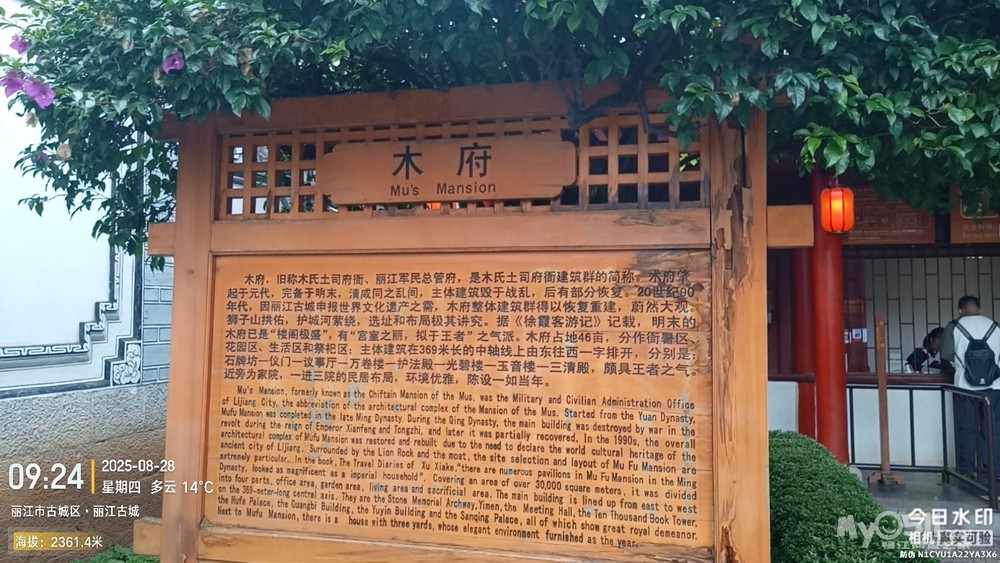 木府
Mu's Mansion
木府，旧称木氏土司府衙、丽江军民总管府，是木氏土司府衙建筑群的简称。木府肇
起于元代，完备于明末，清咸同之乱间，主体建筑毁于战乱，后有部分恢复。20世纪90
年代，因丽江古城申报世界文化遗产之需，木府整体建筑群得以恢复重建，蔚然大观。
狮子山拱佑，护城河萦绕，选址和布局极其讲究。据《徐霞客游记》记载，明末的
木府已是“楼阁极盛”，有“宫室之丽，拟于王者”之气派。木府占地46亩，分作衙署区、
花园区、生活区和祭祀区，主体建筑在369米长的中轴线上由东往西一字排开，分别是：
石牌坊—仪门—议事厅—万卷楼—护法殿—光碧楼—玉音楼—三清殿，颇具王者之气。
近旁为家院，一进三院的民居布局，环境优雅，陈设一如当年。
Mu's Mansion, formerly known as the Chiftain Mansion of the Mus, was the Military and Civilian Administration Office
of Lijiang City, the abbreviation of the architectural complex of the Mansion of the Mus. Started from the Yuan Dynasty,
Mufu Mansion was completed in the late Ming Dynasty. During the Qing Dynasty, the main building was destroyed by war in the
revolt during the reign of Emperor Xianfeng and Tongzhi, and later it was partially recovered. In the 1990s, the overall
architectural complex of Mufu Mansion was restored and rebuilt due to the need to declare the world cultural heritage of the
ancient city of Lijiang. Surrounded by the Lion Rock and the moat, the site selection and layout of Mu Fu Mansion are
extremely particular. In the book, The Travel Diaries of Xu Xiake, "there are numerous pavilions in Mu Fu Mansion in the Ming
Dynasty, looked as magnificent as a imperial household". Covering an area of over 30,000 square meters, it was divided
into four parts, office area, garden area, living area and sacrificial area. The main building is lined up from east to west
on the 369-meter-long central axis. They are the Stone Memorial Archway,Yimen, the Meeting Hall, the Ten Thousand Book Tower,
the Hufa Palace, the Guangbi Building, the Yuyin Building and the Sanqing Palace, all of which show great royal demeanor.
Next to Mufu Mansion, there is a house with three yards, whose elegant environment furnished as the year.
09:24
2025-08-28
星期四 多云 14℃
丽江市古城区·丽江古城
海拔：2361.4米
今日水印
相机真实可验
防伪 N1CYU1A22YA3X6